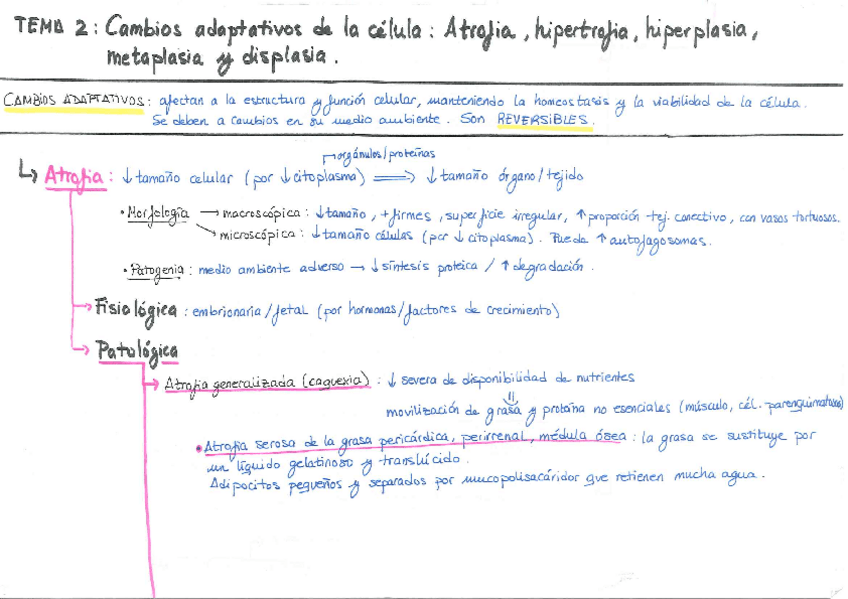 TEMA 2: Cambios adaptativos de la célula: Atrofia, hipertrofia, hiperplasia,
metaplasia y displasia.
CAMBIOS ADAPTATIVOS: afectan a la estructura y función celular, manteniendo la homeostasis y la viabilidad de la célula.
Se deben a cambios en su medio ambiente. Son REVERSIBLES.
orgánulos/proteínas
↳ Atrofia: ↓ tamaño celular (por ↓ citoplasma) ⇒ ↓ tamaño órgano/tejido
• Morfología → macroscópica: ↓ tamaño, + firmes, superficie irregular, ↑ proporción tej. conectivo, con vasos tortuosos.
→ microscópica: ↓ tamaño células (por ↓ citoplasma). Puede ↑ autofagosomas.
• Patogenia: medio ambiente adverso → ↓ síntesis proteica / ↑ degradación.
→ Fisiológica: embrionaria/fetal (por hormonas/factores de crecimiento)
→ Patológica
→ Atrofia generalizada (caquexia): ↓ severa de disponibilidad de nutrientes
⇓
movilización de grasa y proteína no esenciales (músculo, cél. parenquimatosa)
• Atrofia serosa de la grasa pericárdica, perirrenal, médula ósea: la grasa se sustituye por
un líquido gelatinoso y translúcido.
Adipocitos pequeños y separados por mucopolisacáridor que retienen mucha agua.